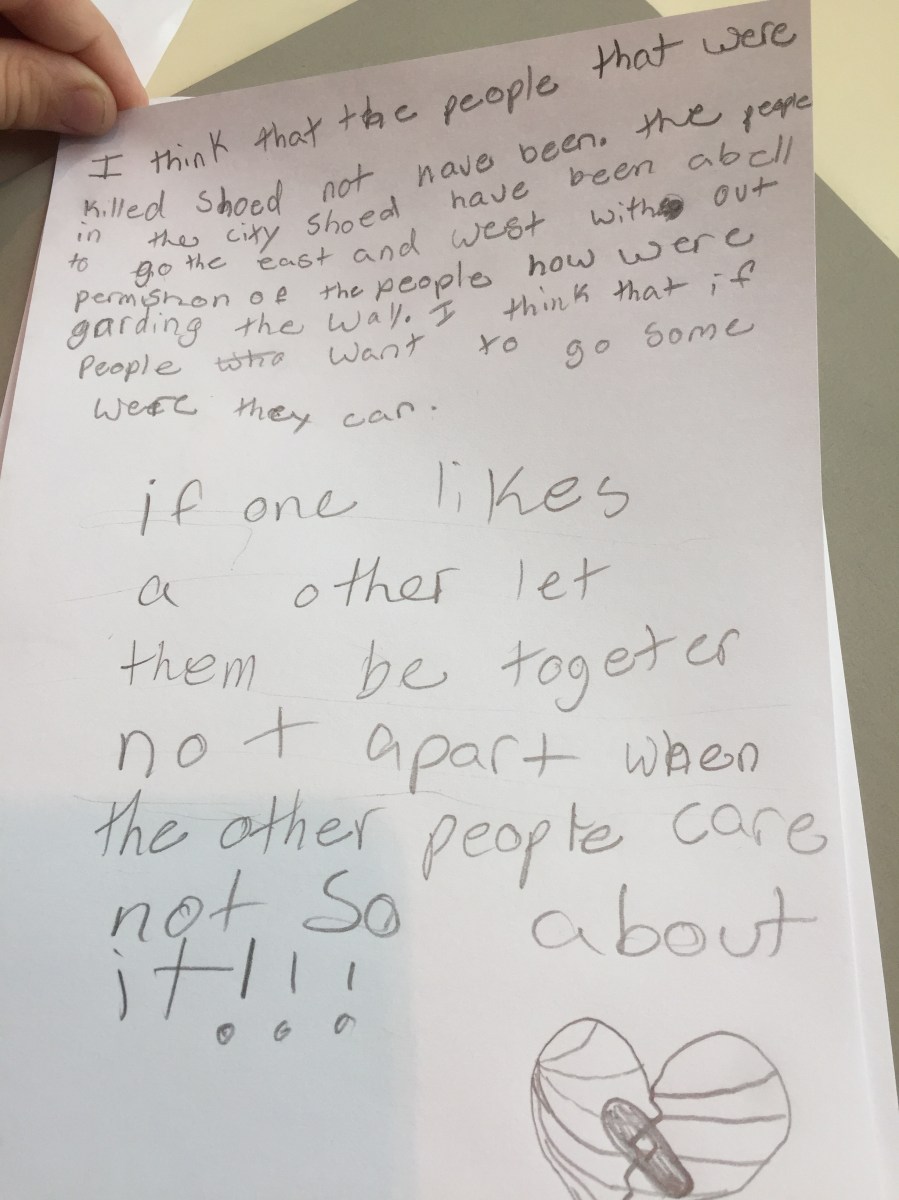 I think that the people that were
killed shoed not have been. the people
in the city shoed have been abell
to go the east and west with out
permishon of the people how were
garding the wall. I think that if
People who want to go some
were they can.
if one likes
a other let
them be togeter
not apart when
the other people care
not so about
it!!!